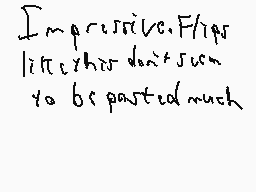 Impressive. Flips
like this don't seem
to be posted much